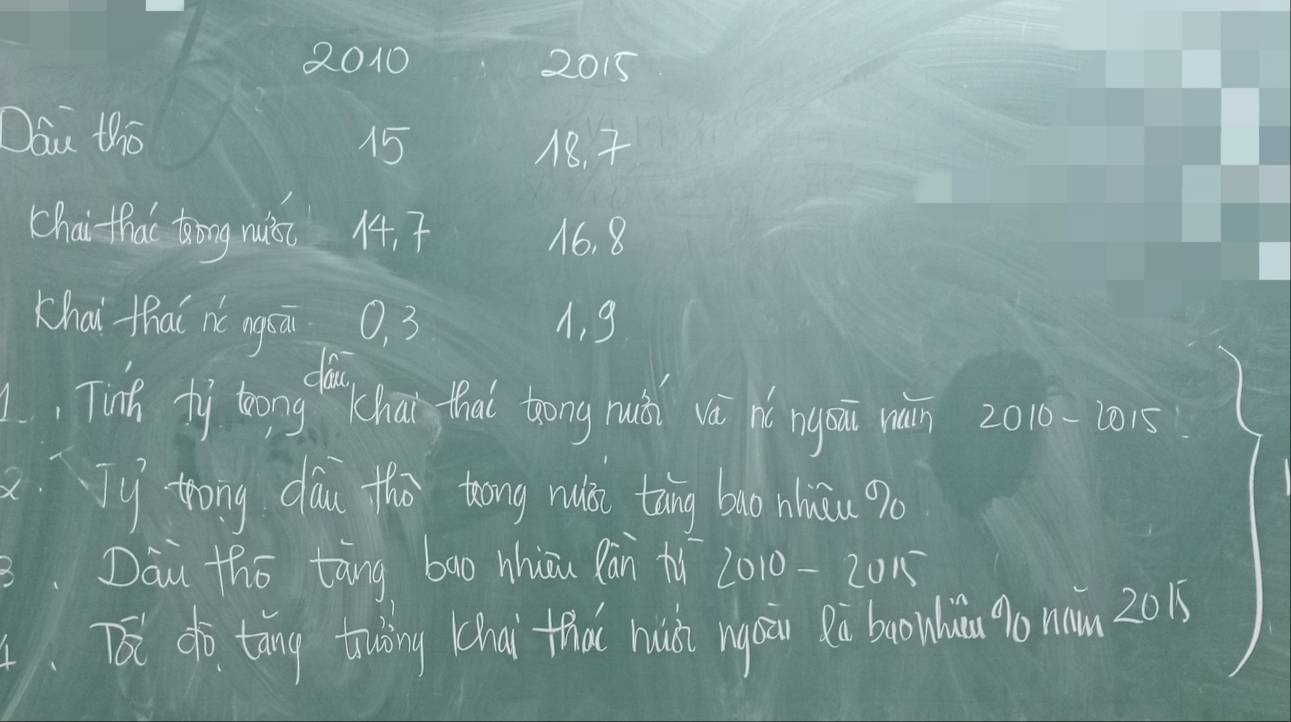 2010 2015
Dầu thô 15 18,7
Khai thác trong nước 14,7 16,8
Khai thác nc ngoài 0,3 1,9
1. Tính tỷ trọng dầu khai thác trong nước và nc ngoài năm 2010 - 2015.
2. Tỷ trọng dầu thô trong nước tăng bao nhiêu %
3. Dầu thô tăng bao nhiêu lần từ 2010 - 2015
4. Tốc độ tăng trưởng khai thác nước ngoài là bao nhiêu % năm 2015